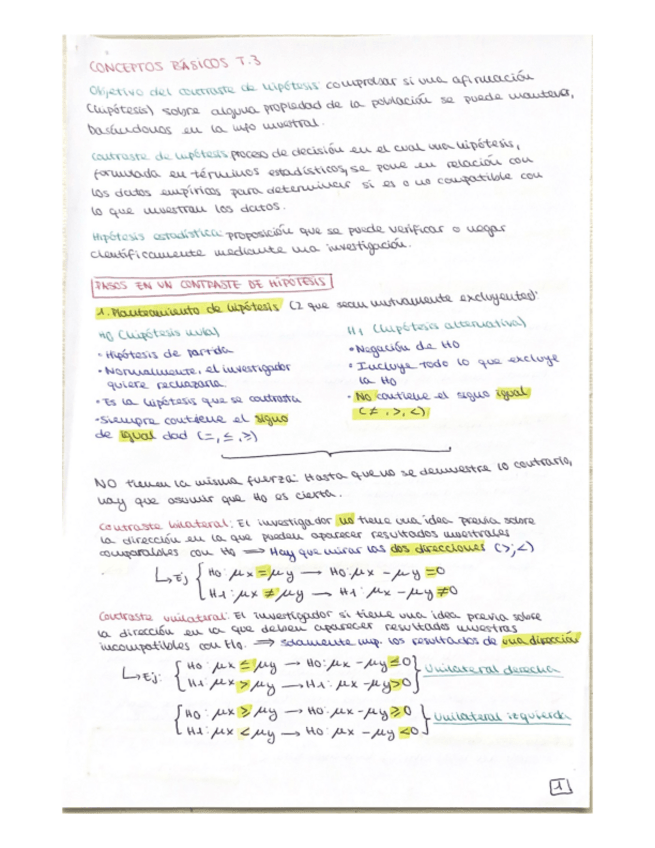 CONCEPTOS BÁSICOS T.3
Objetivo del contraste de hipótesis: comprobar si una afirmación
(hipótesis) sobre alguna propiedad de la población se puede mantener,
basándonos en la info muestral.
Contraste de hipótesis: proceso de decisión en el cual una hipótesis,
formulada en términos estadísticos, se pone en relación con
los datos empíricos para determinar si es o no compatible con
lo que muestran los datos.
Hipótesis estadística: proposición que se puede verificar o negar
científicamente mediante una investigación.
PASOS EN UN CONTRASTE DE HIPÓTESIS
1. Planteamiento de hipótesis (2 que sean mutuamente excluyentes):
H0 (hipótesis nula)
• Hipótesis de partida
• Normalmente, el investigador
quiere rechazarla.
• Es la hipótesis que se contrasta
• Siempre contiene el signo
de igual dad (=, ≤, ≥)
H1 (hipótesis alternativa)
• Negación de H0
• Incluye todo lo que excluye
la H0
• No contiene el signo igual
(≠, >, <)
NO tienen la misma fuerza: Hasta que no se demuestre lo contrario,
hay que asumir que H0 es cierta.
Contraste bilateral: El investigador no tiene una idea previa sobre
la dirección en la que pueden aparecer resultados muestrales
comparables con H0 ⟹ Hay que mirar las dos direcciones (>;<)
↳ Ej { H0: μx = μy → H0: μx - μy = 0
H1: μx ≠ μy → H1: μx - μy ≠ 0
Contraste unilateral: El investigador si tiene una idea previa sobre
la dirección en la que deben aparecer resultados muestras
incompatibles con H0. ⟹ solamente imp. los resultados de una dirección
↳ Ej: { H0: μx ≤ μy → H0: μx - μy ≤ 0 } Unilateral derecha
H1: μx > μy → H1: μx - μy > 0
{ H0: μx ≥ μy → H0: μx - μy ≥ 0 } Unilateral izquierda
H1: μx < μy → H0: μx - μy < 0
1